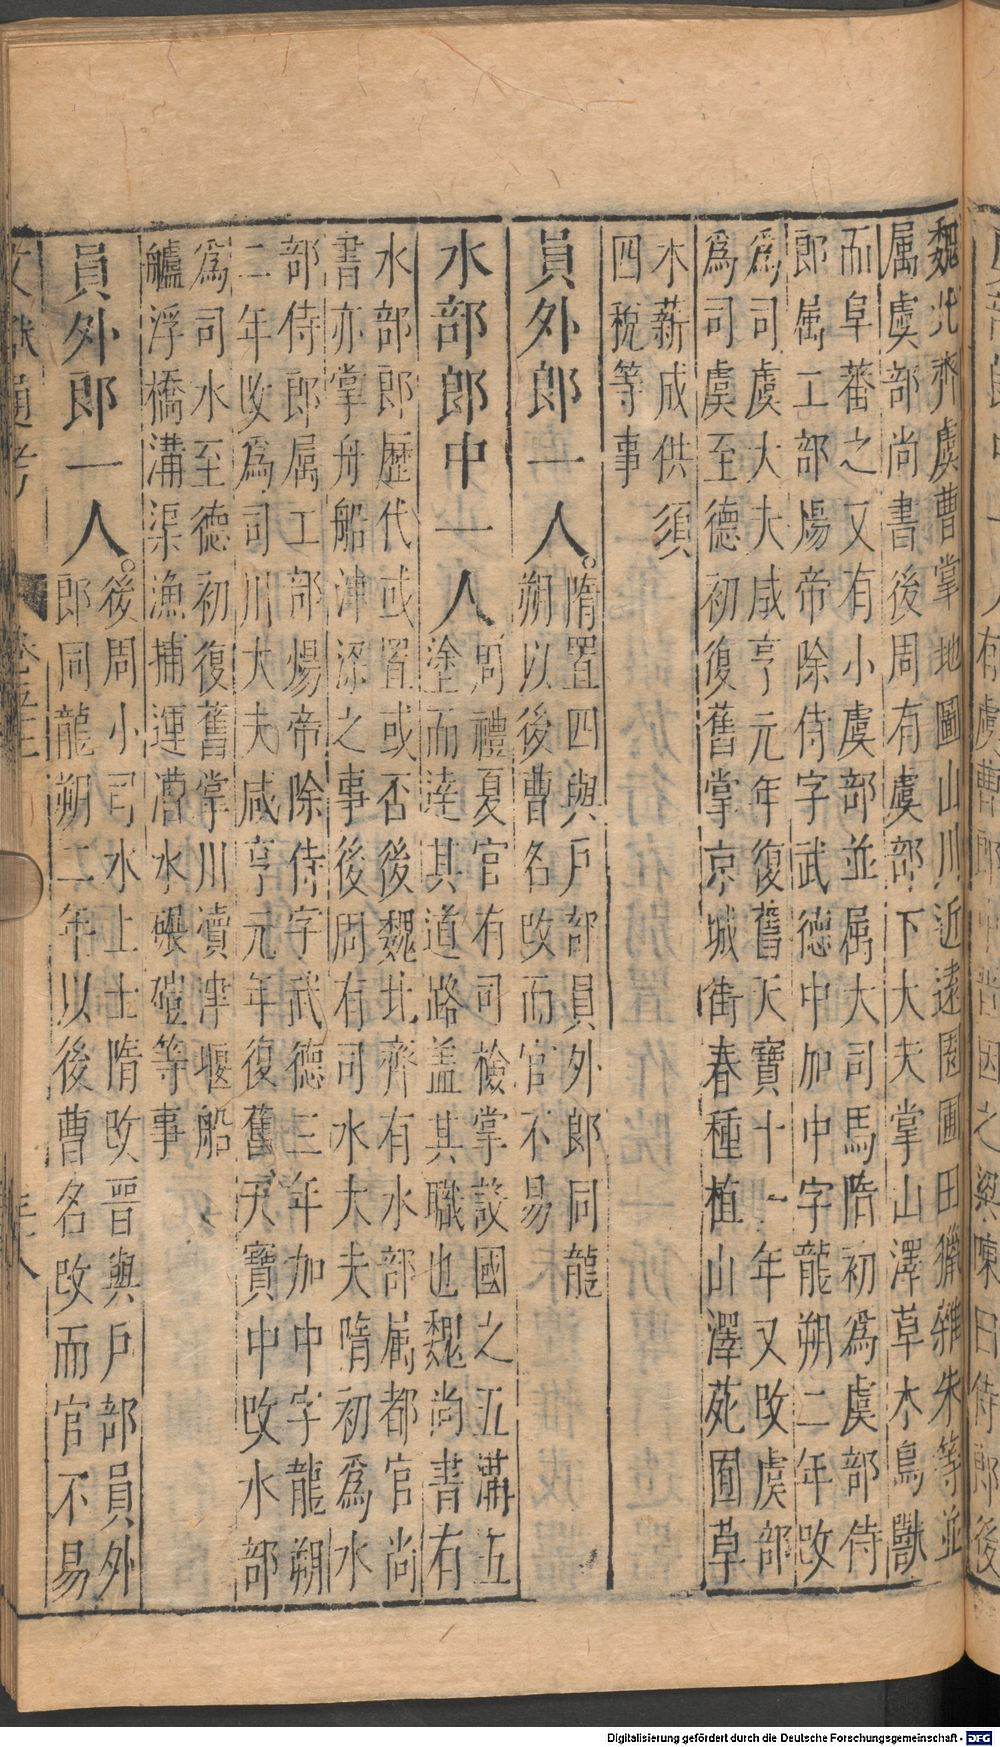 有虞曹郎中晉因之梁陳曰侍郎後
魏北齊虞曹掌地圖山川近遠園圃田獵雜朱等並
属虞部尚書後周有虞部下大夫掌山澤草木鳥獸
而阜蕃之又有小虞部並属大司馬隋初爲虞部侍
郎属工部煬帝除侍字武德中加中字龍朔二年改
爲司虞大夫咸亨元年復舊天寶十一年又改虞部
爲司虞至德初復舊掌京城街春種植山澤苑囿草
木薪成供須
四稅等事
員外郎一人。隋置四與戶部員外郎同龍
朔以後曹名改而官不易
水部郎中一人周禮夏官有司檢掌設國之五溝五
塗而達其道路盖其職也魏尚書有
水部郎歷代或置或否後魏北齊有水部属都官尚
書亦掌舟船津深之事後周有司水大夫隋初爲水
部侍郎属工部煬帝除侍字武德三年加中字龍朔
二年改爲司川大夫咸亨元年復舊天寶中改水部
爲司水至德初復舊掌川瀆津堰船
艫浮橋溝渠漁捕運漕水碾磑等事
員外郎一人。後周小司水上士隋改晋與戶部員外
郎同龍朔二年以後曹名改而官不易
文獻通考 卷五十二 三十八
Digitalisierung gefördert durch die Deutsche Forschungsgemeinschaft - DFG